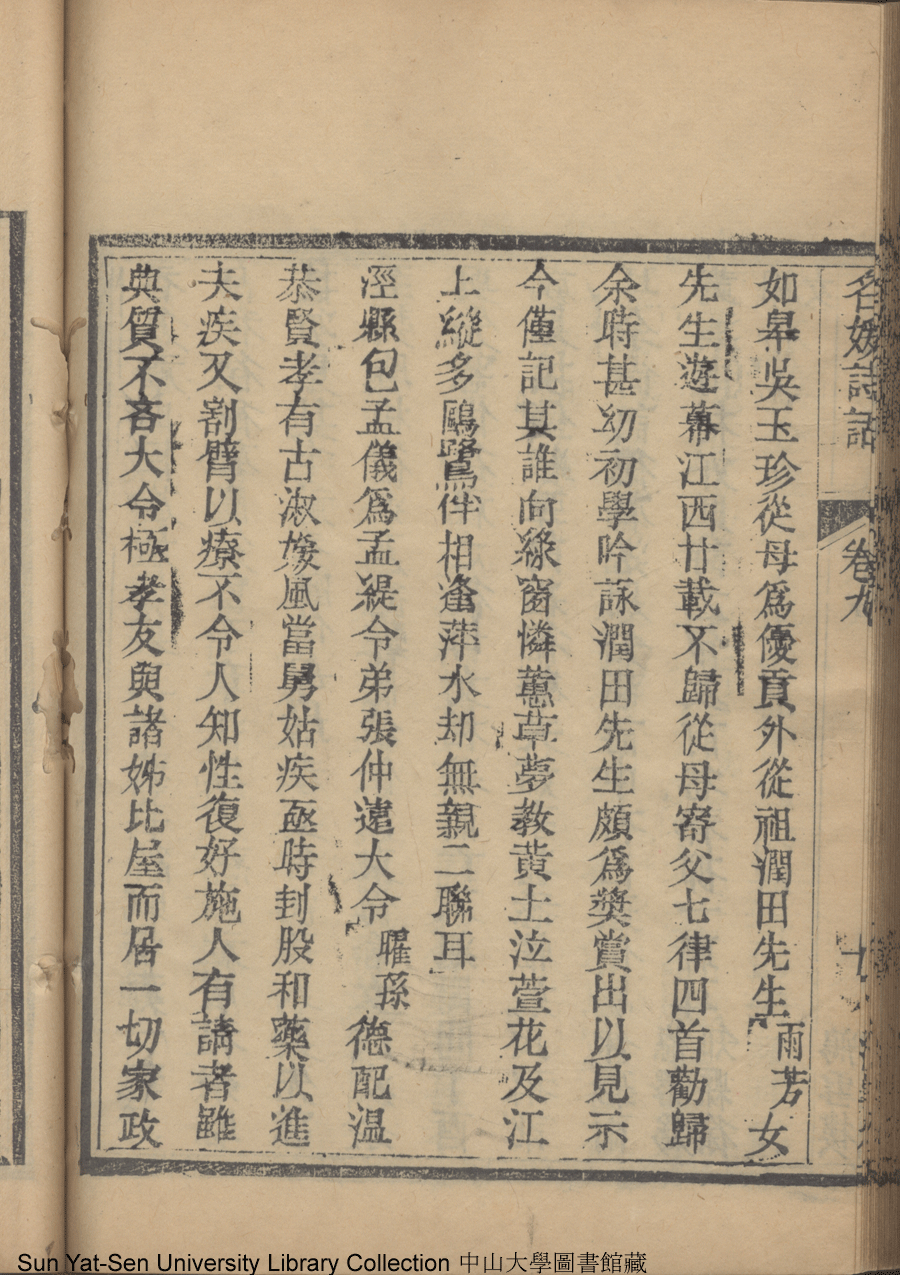 名媛詩話　卷九
如皋吳玉珍從母爲優貢外從祖潤田先生雨芳女
先生遊幕江西廿載不歸從母寄父七律四首勸歸
余時甚幼初學吟詠潤田先生頗爲獎賞出以見示
今僅記其誰向綠窗憐蕙草夢教黃土泣萱花及江
上縱多鷗鷺伴相逢萍水却無親二聯耳
涇縣包孟儀爲孟緹令弟張仲遠大令曜孫德配温
恭賢孝有古淑媛風當舅姑疾亟時刲股和藥以進
夫疾又割臂以療不令人知性復好施人有請者雖
典質不吝大令極孝友與諸姊比屋而居一切家政
Sun Yat-Sen University Library Collection 中山大學圖書館藏